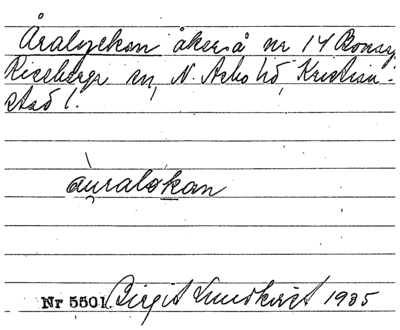 Åralyckan åker å nr 14 Bonarp
Riseberga sn, N. Åsbo hd, Kristian-
stad l.
àu̧ralo̧kan
Nr 5501 Birgit Lundkvist 1935